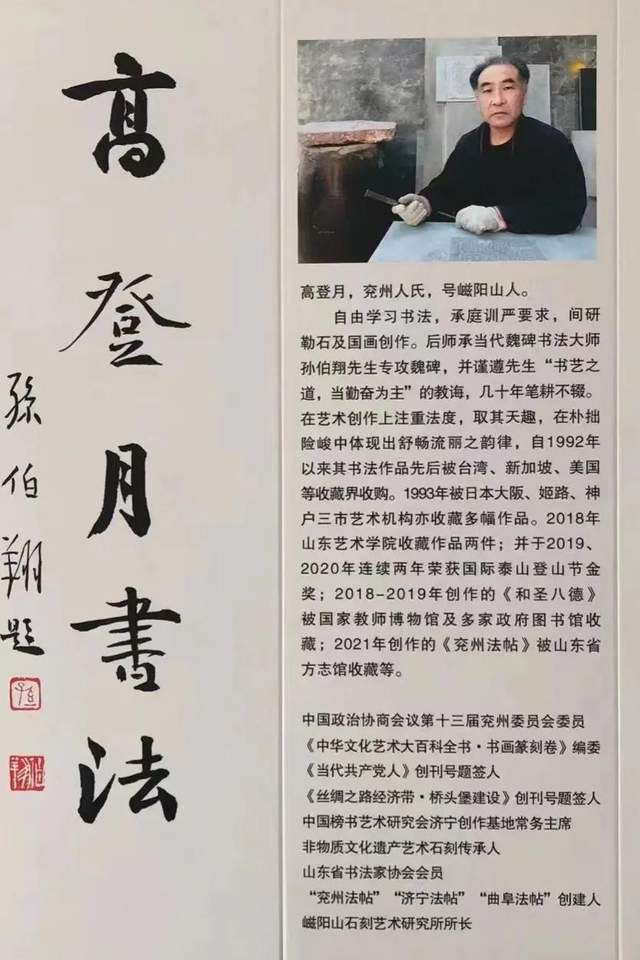 高登月書法
孫伯翔題
高登月，兖州人氏，号嵫阳山人。
自由学习书法，承庭训严要求，间研
勒石及国画创作。后师承当代魏碑书法大师
孙伯翔先生专攻魏碑，并谨遵先生“书艺之
道，当勤奋为主”的教诲，几十年笔耕不辍。
在艺术创作上注重法度，取其天趣，在朴拙
险峻中体现出舒畅流丽之韵律，自1992年
以来其书法作品先后被台湾、新加坡、美国
等收藏界收购。1993年被日本大阪、姬路、神
户三市艺术机构亦收藏多幅作品。2018年
山东艺术学院收藏作品两件；并于2019、
2020年连续两年荣获国际泰山登山节金
奖；2018-2019年创作的《和圣八德》
被国家教师博物馆及多家政府图书馆收
藏；2021年创作的《兖州法帖》被山东省
方志馆收藏等。
中国政治协商会议第十三届兖州委员会委员
《中华文化艺术大百科全书·书画篆刻卷》编委
《当代共产党人》创刊号题签人
《丝绸之路经济带·桥头堡建设》创刊号题签人
中国榜书艺术研究会济宁创作基地常务主席
非物质文化遗产艺术石刻传承人
山东省书法家协会会员
“兖州法帖”“济宁法帖”“曲阜法帖”创建人
嵫阳山石刻艺术研究所所长